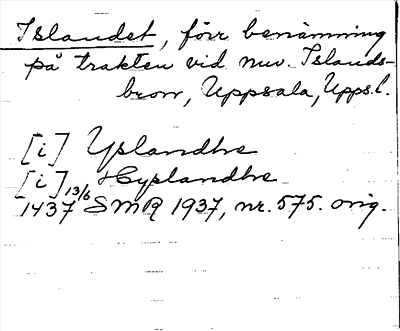 Islandet, förr benämning
på trakten vid nuv. Islands-
bron, Uppsala, Upps.l.
[i] Yslandhe
[i] Hyslandhe
1437 13/6 SMR 1937, nr. 575. orig.